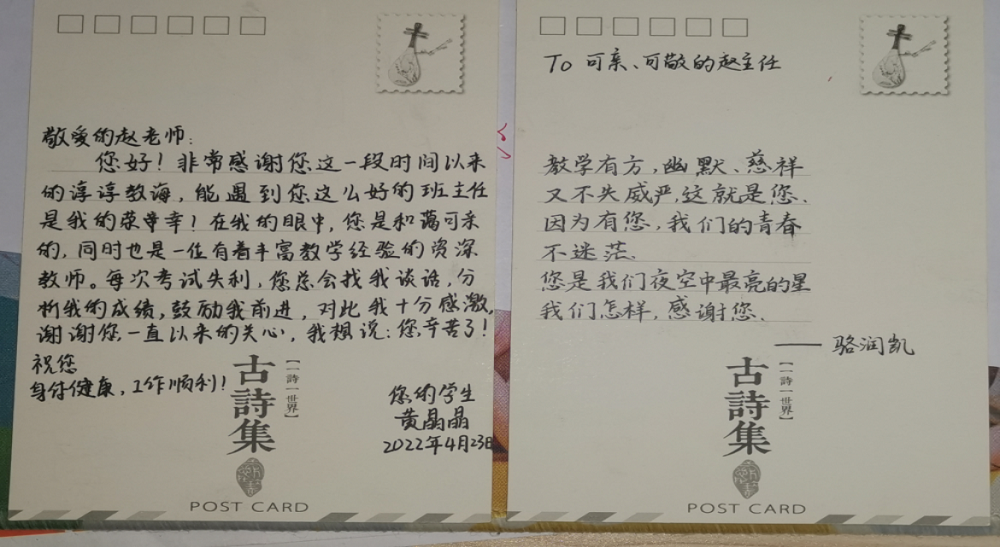 敬爱的赵老师：
您好！非常感谢您这一段时间以来
的谆谆教诲，能遇到您这么好的班主任
是我的荣幸！在我的眼中，您是和蔼可亲
的，同时也是一位有着丰富教学经验的资深
教师。每次考试失利，您总会找我谈话，分
析我的成绩，鼓励我前进，对此我十分感激，
谢谢您一直以来的关心，我想说：您辛苦了！
祝您
身体健康，工作顺利！
您的学生
黄晶晶
2022年4月23日
【一詩一世界】
古詩集
POST CARD
To 可亲、可敬的赵主任
教学有方，幽默、慈祥
又不失威严，这就是您.
因为有您，我们的青春
不迷茫.
您是我们夜空中最亮的星
我们怎样，感谢您.
——骆润凯
【一詩一世界】
古詩集
POST CARD